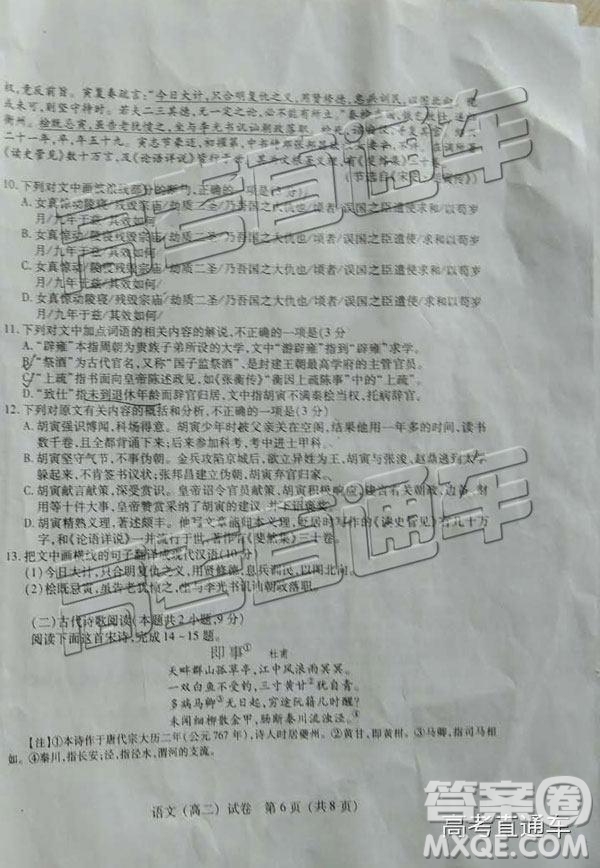 权,竟反前旨。寅复奏疏言:“今日大计,只合明复仇之义,用贤修德,息兵训民,以图北向。傥
或未可,则坚守待时。若夫二三其德,无一定之论,必不能有所立。”
衡州。桧既忌寅,虽告老犹愤之,坐与李光书讥讪朝政落职。桧死,
二十一年,卒,年五十九。寅志节豪迈,初擢第,中书侍郎张邦昌
《读史管见》数十万言,及《论语详说》皆行于世。其为文根著义理,有《斐然集》三十卷。
(节选自《宋史·
10.下列对文中画波浪线部分的断句,正确的一项是(3分)
A.女真惊动/陵寝残毁宗庙/劫质二圣/乃吾国之大仇也/顷者/误国之臣遣使求和/以苟岁
月/九年于兹/其效如何/
B.女真惊动/陵寝残毁宗庙/劫质二圣/乃吾国之大仇也/顷者/误国之臣遣使/求和以苟岁
月/九年于兹/其效如何/
C.女真惊动/陵寝/残毁宗庙/劫质二圣/乃吾国之大仇也/顷者/误国之臣遣使求和/以苟岁
月/九年于兹/其效如何/
D.女真惊动陵寝/残毁宗庙/劫质二圣/乃吾国之大仇也/顷者/误国之臣遣使求和/以苟岁
月/九年于兹/其效如何/
11.下列对文中加点词语的相关内容的解说,不正确的一项是(3分)
A.“辟雍”本指周朝为贵族子弟所设的大学,文中“游辟雍”指到“辟雍”求学。
B.“祭酒”为古代官名,又称“国子监祭酒”,是封建王朝最高学府的主管官员。
C.“上疏”指书面向皇帝陈述政见,如《张衡传》“衡因上疏陈事”中的“上疏”。
D.“致仕”指未到退休年龄而主动辞官,文中指胡寅不满秦桧当权,托病辞官。
12.下列对原文有关内容的概括和分析,不正确的一项是(3分)
A.胡寅强识博闻,科场得意。胡寅少年时被父亲关在空阁,他用一年多的时间,读书
数千卷,且全都背诵下来;后来参加科考,考中进士甲科。
B.胡寅坚守气节,不事伪朝。金兵攻陷京城后,欲立异姓为王,胡寅与张浚、赵鼎逃到太学
躲起来,不肯签书议状;张邦昌建立伪朝,胡寅弃官归家。
C.胡寅献言献策,深受赏识。皇帝诏令官员献策,胡寅积极响应,建言有关朝政、边事、财
用等十件大事,皇帝赞赏采纳了胡寅的建议,更召他入对。
D.胡寅精熟义理,著述颇丰。他写文章崇尚义理,贬居时写作的《读史管见》有几十万
字,和《论语详说》一并刊行于世,另著有《斐然集》三十卷。
13.把文中画横线的句子翻译成现代汉语(10分)
(1)今日大计,只合明复仇之义,用贤修德,息兵训民,以图北向。
(2)桧既忌寅,虽告老犹愤之,坐与李光书讥讪朝政落职。
(二)古代诗歌阅读(本题共2小题,9分)
阅读下面这首宋诗,完成14~15题。
即事①
杜甫
天畔群山孤草亭,江中风浪雨冥冥。
一双白鱼不受钓,三寸黄甘②犹自青。
多病马卿③无日起,穷途阮籍几时醒?
未闻细柳散金甲,肠断秦川流浊泾。④
【注】①本诗作于唐代宗大历二年(公元767年),诗人时居夔州。②黄甘,即黄柑。③马卿,指司马相
如。④秦川,指长安;泾,指泾水,渭河的支流。
语文(高二)试卷 第6页(共8页)
高考直通车
高考直通车
高考直通车
答案圈
MXQE.COM
高考直通车